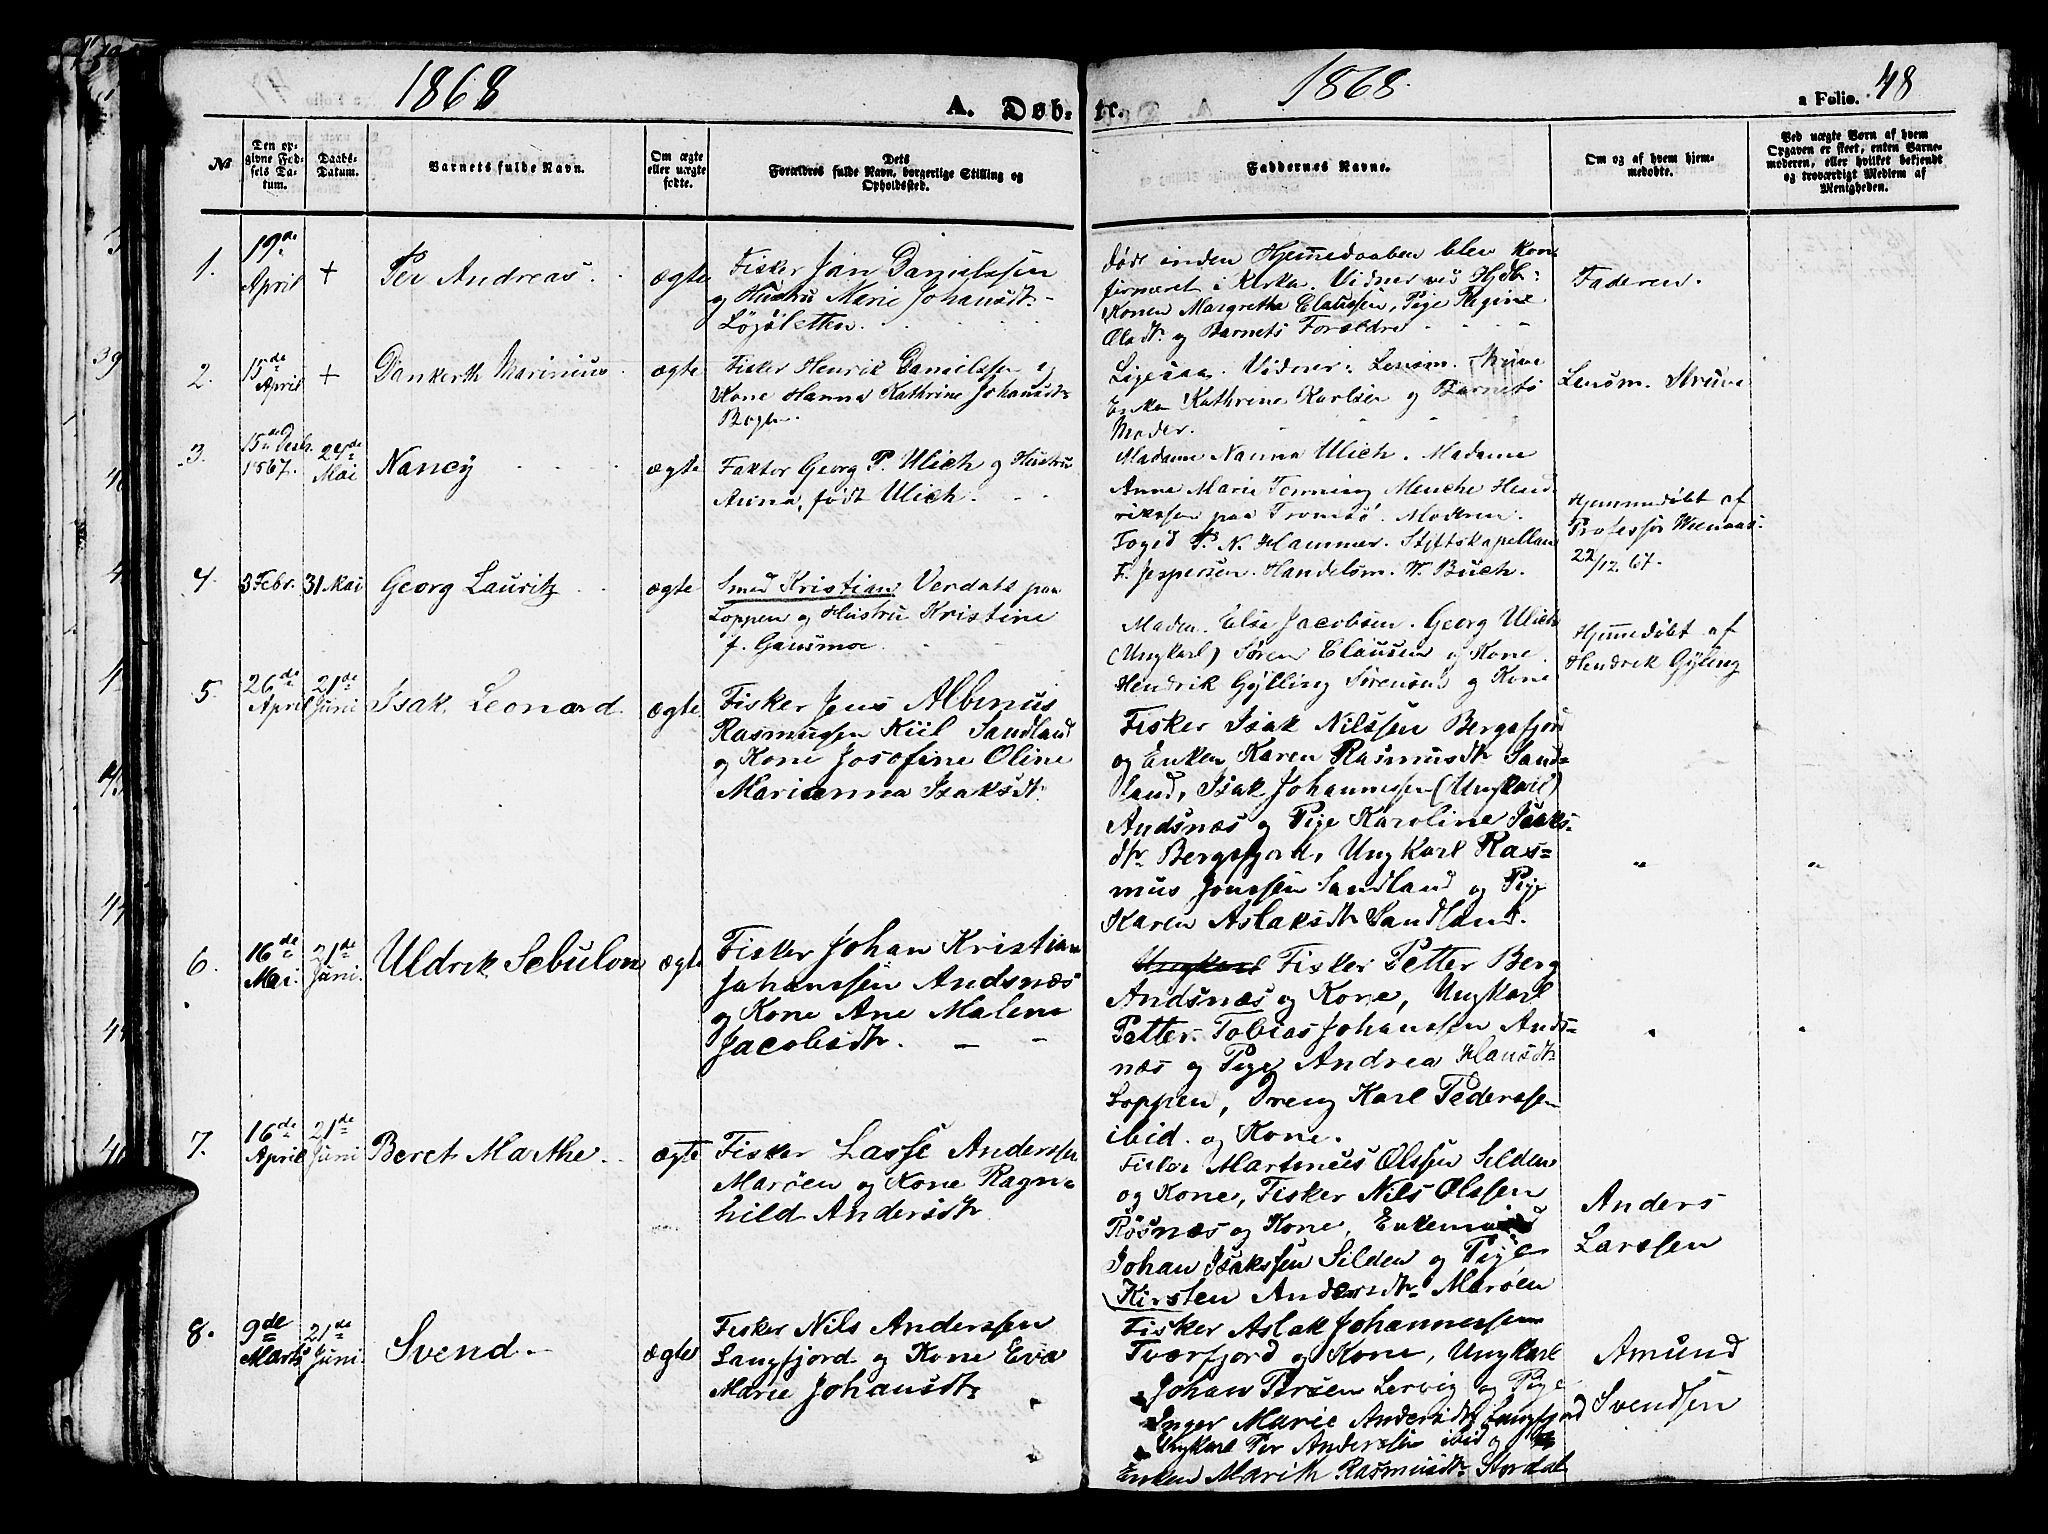 1868
A. Døb-
te.
1868.
a Folio. 48
No
Den op-
givne Fød-
sels Da-
tum.
Daabs-
Datum.
Barnets fulde Navn.
Om ægte
eller uægte
fødte.
Dets
Forældres fulde Navn, borgerlige Stilling og
Opholdssted.
Faddernes Navne.
Om og af hvem hjem-
medøbt.
Ved uægte Børn af hvem
Opgaven er skeet, enten Barne-
moderen, eller hvilket bekjendt
og troværdigt Medlem af
Menigheden.
1.
19de
April
+
Per Andreas.
ægte
Fisker Jan Danielssen
og Hustru Merie Johansdt.
død inden Hjemmedaaben blev kon
firmeret i Kirken. Vidner ved Hjdb:
Konen Margrethe Claussen, Pige Regine
Olsdtr. og Barnets Forældre
Faderen.
2.
15de
April
+
Dankerth Marinius
ægte
Fisker Henrik Danielssen og
Kone Hanna Kathrine Johansdtr
Ligesaa. Vidner: Lensm. Struve
Enken Kathrine Karlsen og Barnets
Moder.
Lensm. Struve
3.
15de Decbr.
1867.
24de
Mai
Nancy
ægte
Faktor Georg P. Ulich og Hustru
Anna, født Ulich.
Madame Nanna Ulich. Madame
Anne Marie Fenning Menche Hend
riksen paa Tromsø. Moderen.
Foged P. N. Hammer. Stiftskapellan
F. Jespersen. Handelsm. W. Buch.
Hjemmedøbt af
Professor
22/12 67.
4.
3 Febr.
31. Mai
Georg Lauritz
ægte
Smed Kristian Verdals paa
Loppen og Hustru Kristine
f. Gausmoe.
Maden. Else Jacobsen. Georg Ulich
(Ungkarl) Søren Clausen og Kone.
Hendrik Gylling Sørensen og Kone
Hjemmedøbt af
Hendrik Gyling
5.
26de
April
21de
Juni
Isak Leonard
ægte
Fisker Jens Albinus
Rasmussen Kiil Sandland
og Kone Josofine Oline
Marianna Isaksdtr.
Fisker Isak Nilssen Bergsfjord
og Enken Karen Rasmusdtr Sand=
land, Isak Johannessen (Ungkarl)
Andsnæs og Pige Karoline Isaks-
dtr. Bergsfjord, Ungkarl Ras=
mus Jonssen Sandland og Pige
Karen Aslaksdtr Sandland.
"
"
6.
16de
Mai.
21de
Juni.
Uldrik Sebulon
ægte
Fisker Johan Kristian
Johanssen Andsnæs
og Kone Ane Malene
Jacobsdtr.
Ungkarl Fisker Petter Berg
Andsnæs og Kone, Ungkarl
Petter Tobias Johanssen Ands=
næs og Pige Andrea Hansdtr
Loppen, Dreng Karl Pederssen
ibid. og Kone.
"
"
7.
16de
April
21de
Juni
Beret Marthe
ægte
Fisker Lasse Anderssen
Marøen og Kone Ragn=
hild Andersdtr
Fisker Martinus Olssen Silden
og Kone, Fisker Nils Olssen
Røsnæs og Kone, Enkemand
Johan Isakssen Silden og Pige
Kirsten Andersdtr. Marøen
Anders
Larssen
8.
9de
Marts
21de
Juni.
Svend
ægte
Fisker Nils Anderssen
Langfjord og Kone Eva
Marie Johansdtr
Fisker Aslak Johannessen
Tværfjord og Kone, Ungkarl
Johan Persen Lervig og Pige
Inger Marie Andersdtr Langfjord
Ungkarl Per Anderssen ibid og
Enken Marith Rasmusdtr Stordal
Amund
Svendsen